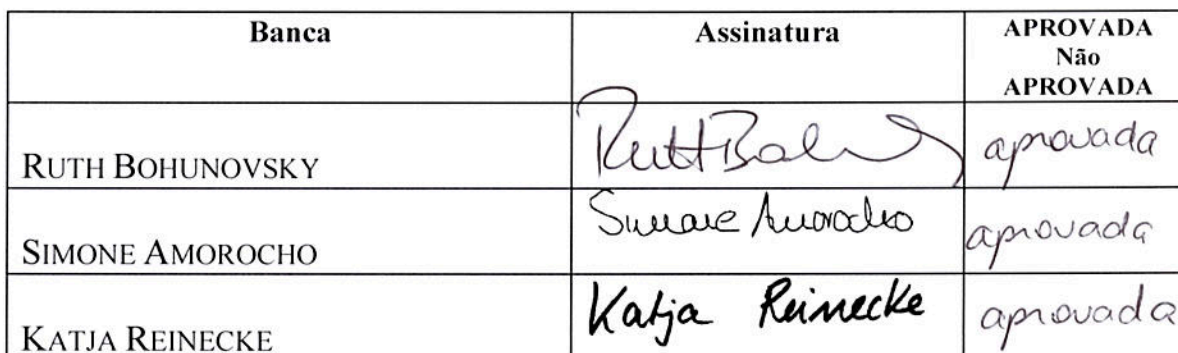 Banca Assinatura APROVADA
Não
APROVADA
RUTH BOHUNOVSKY Ruth Boh aprovada
SIMONE AMOROCHO Simone Amorocho aprovada
KATJA REINECKE Katja Reinecke aprovada